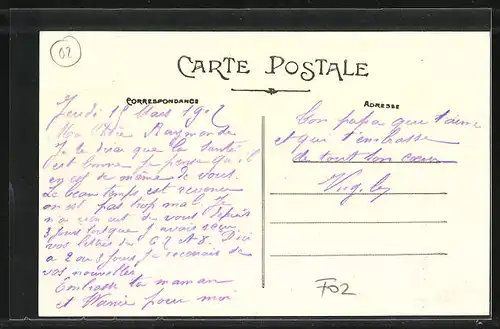 02
CARTE POSTALE
CORRESPONDANCE
ADRESSE
Jeudi 15 Mars 191
Ma Chère Raymonde
Je te dirai que la santé
est bonne je pense qu'il
en est de même de vous.
Le beau temps est revenu
on est pas trop mal. Je
n'ai rien eut de vous depuis
3 jours lorsque j'avais reçu
vos lettres du 6 7 et 8. D'ici
a 2 ou 3 jours je recevrais de
vos nouvelles
Embrasse ta maman
et pour moi
Ton papa qui t'aime
et qui t'embrasse
de tout son cœur
F02